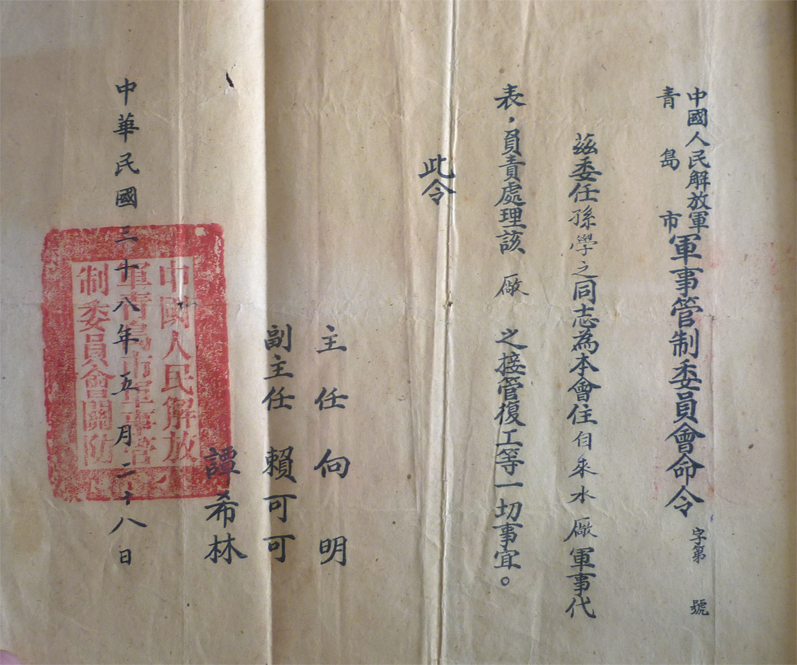 中國人民解放軍
青島市
軍事管制委員會命令 字第 號
茲委任孫學之同志為本會住自來水廠軍事代
表，負責處理該廠之接管復工等一切事宜。
此令
主任 向明
副主任 賴可可
譚希林
中華民國三十八年五月二十八日
中國人民解放
軍青島市軍事管
制委員會關防